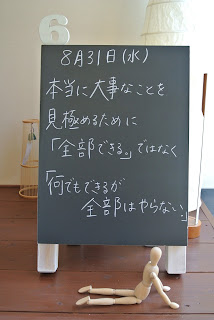 6
8月31日(水)
本当に大事なことを
見極めるために
「全部できる。」ではなく
「何でもできるが
全部はやらない。」